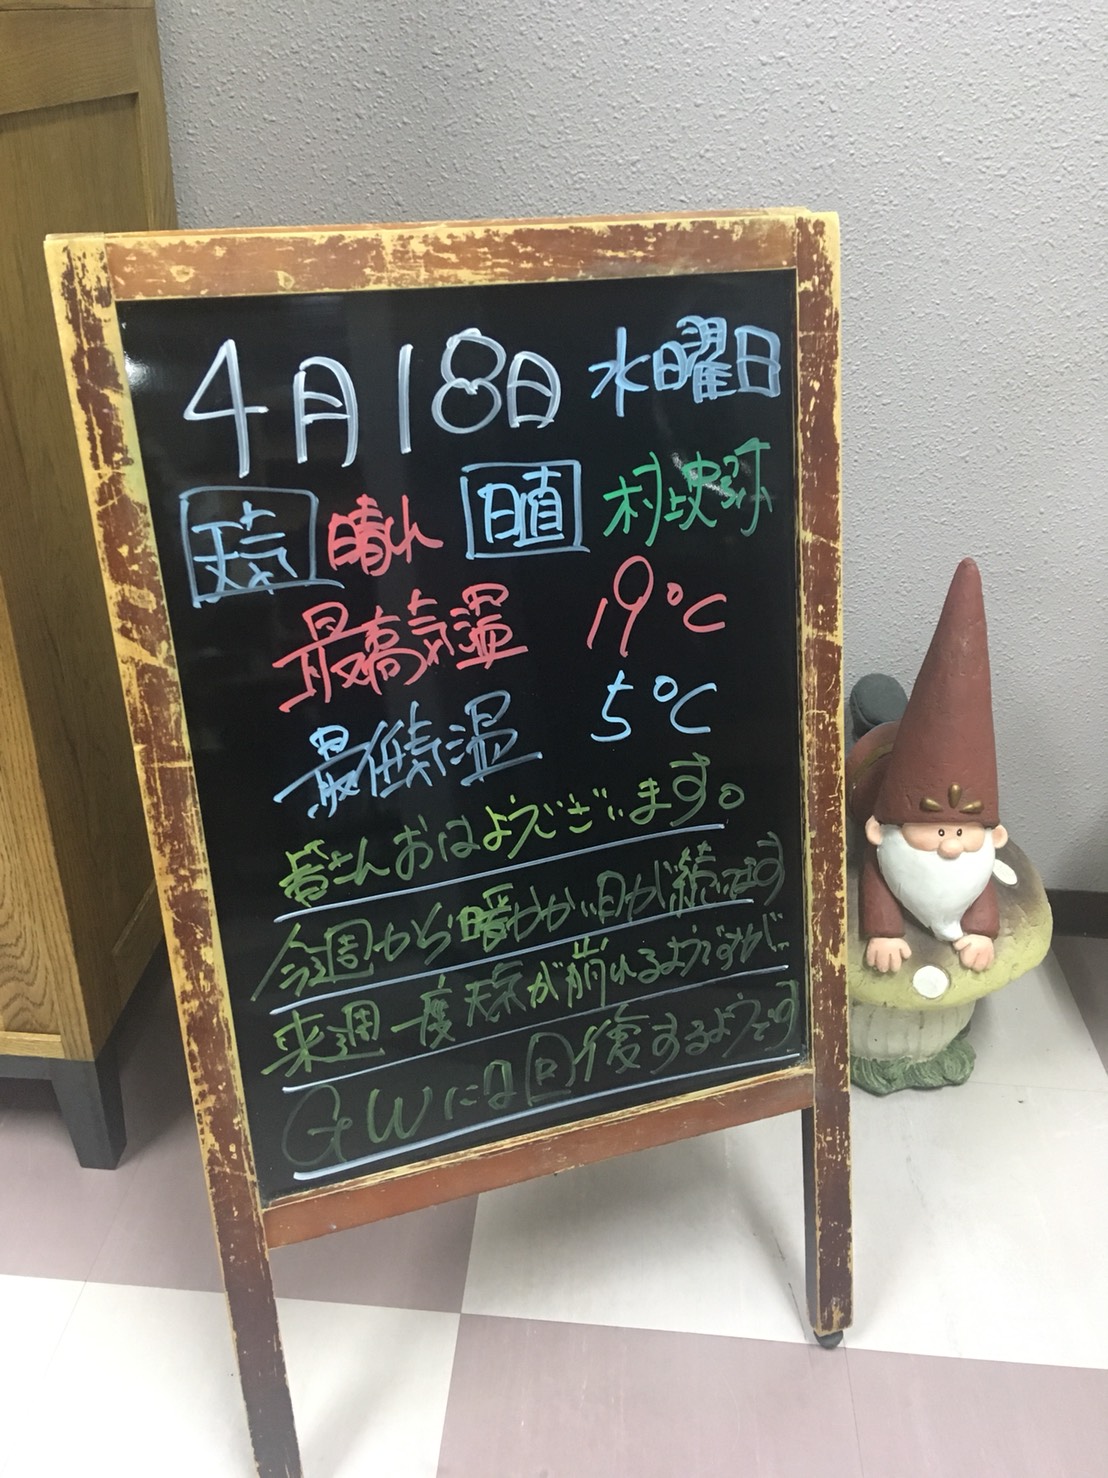 4月18日 水曜日
天気 晴れ 日直 村上映弥
最高気温 19℃
最低気温 5℃
皆さんおはようございます。
今週から暖かい日が続いてます
来週一度天気が崩れるようですが
GWには回復するようです